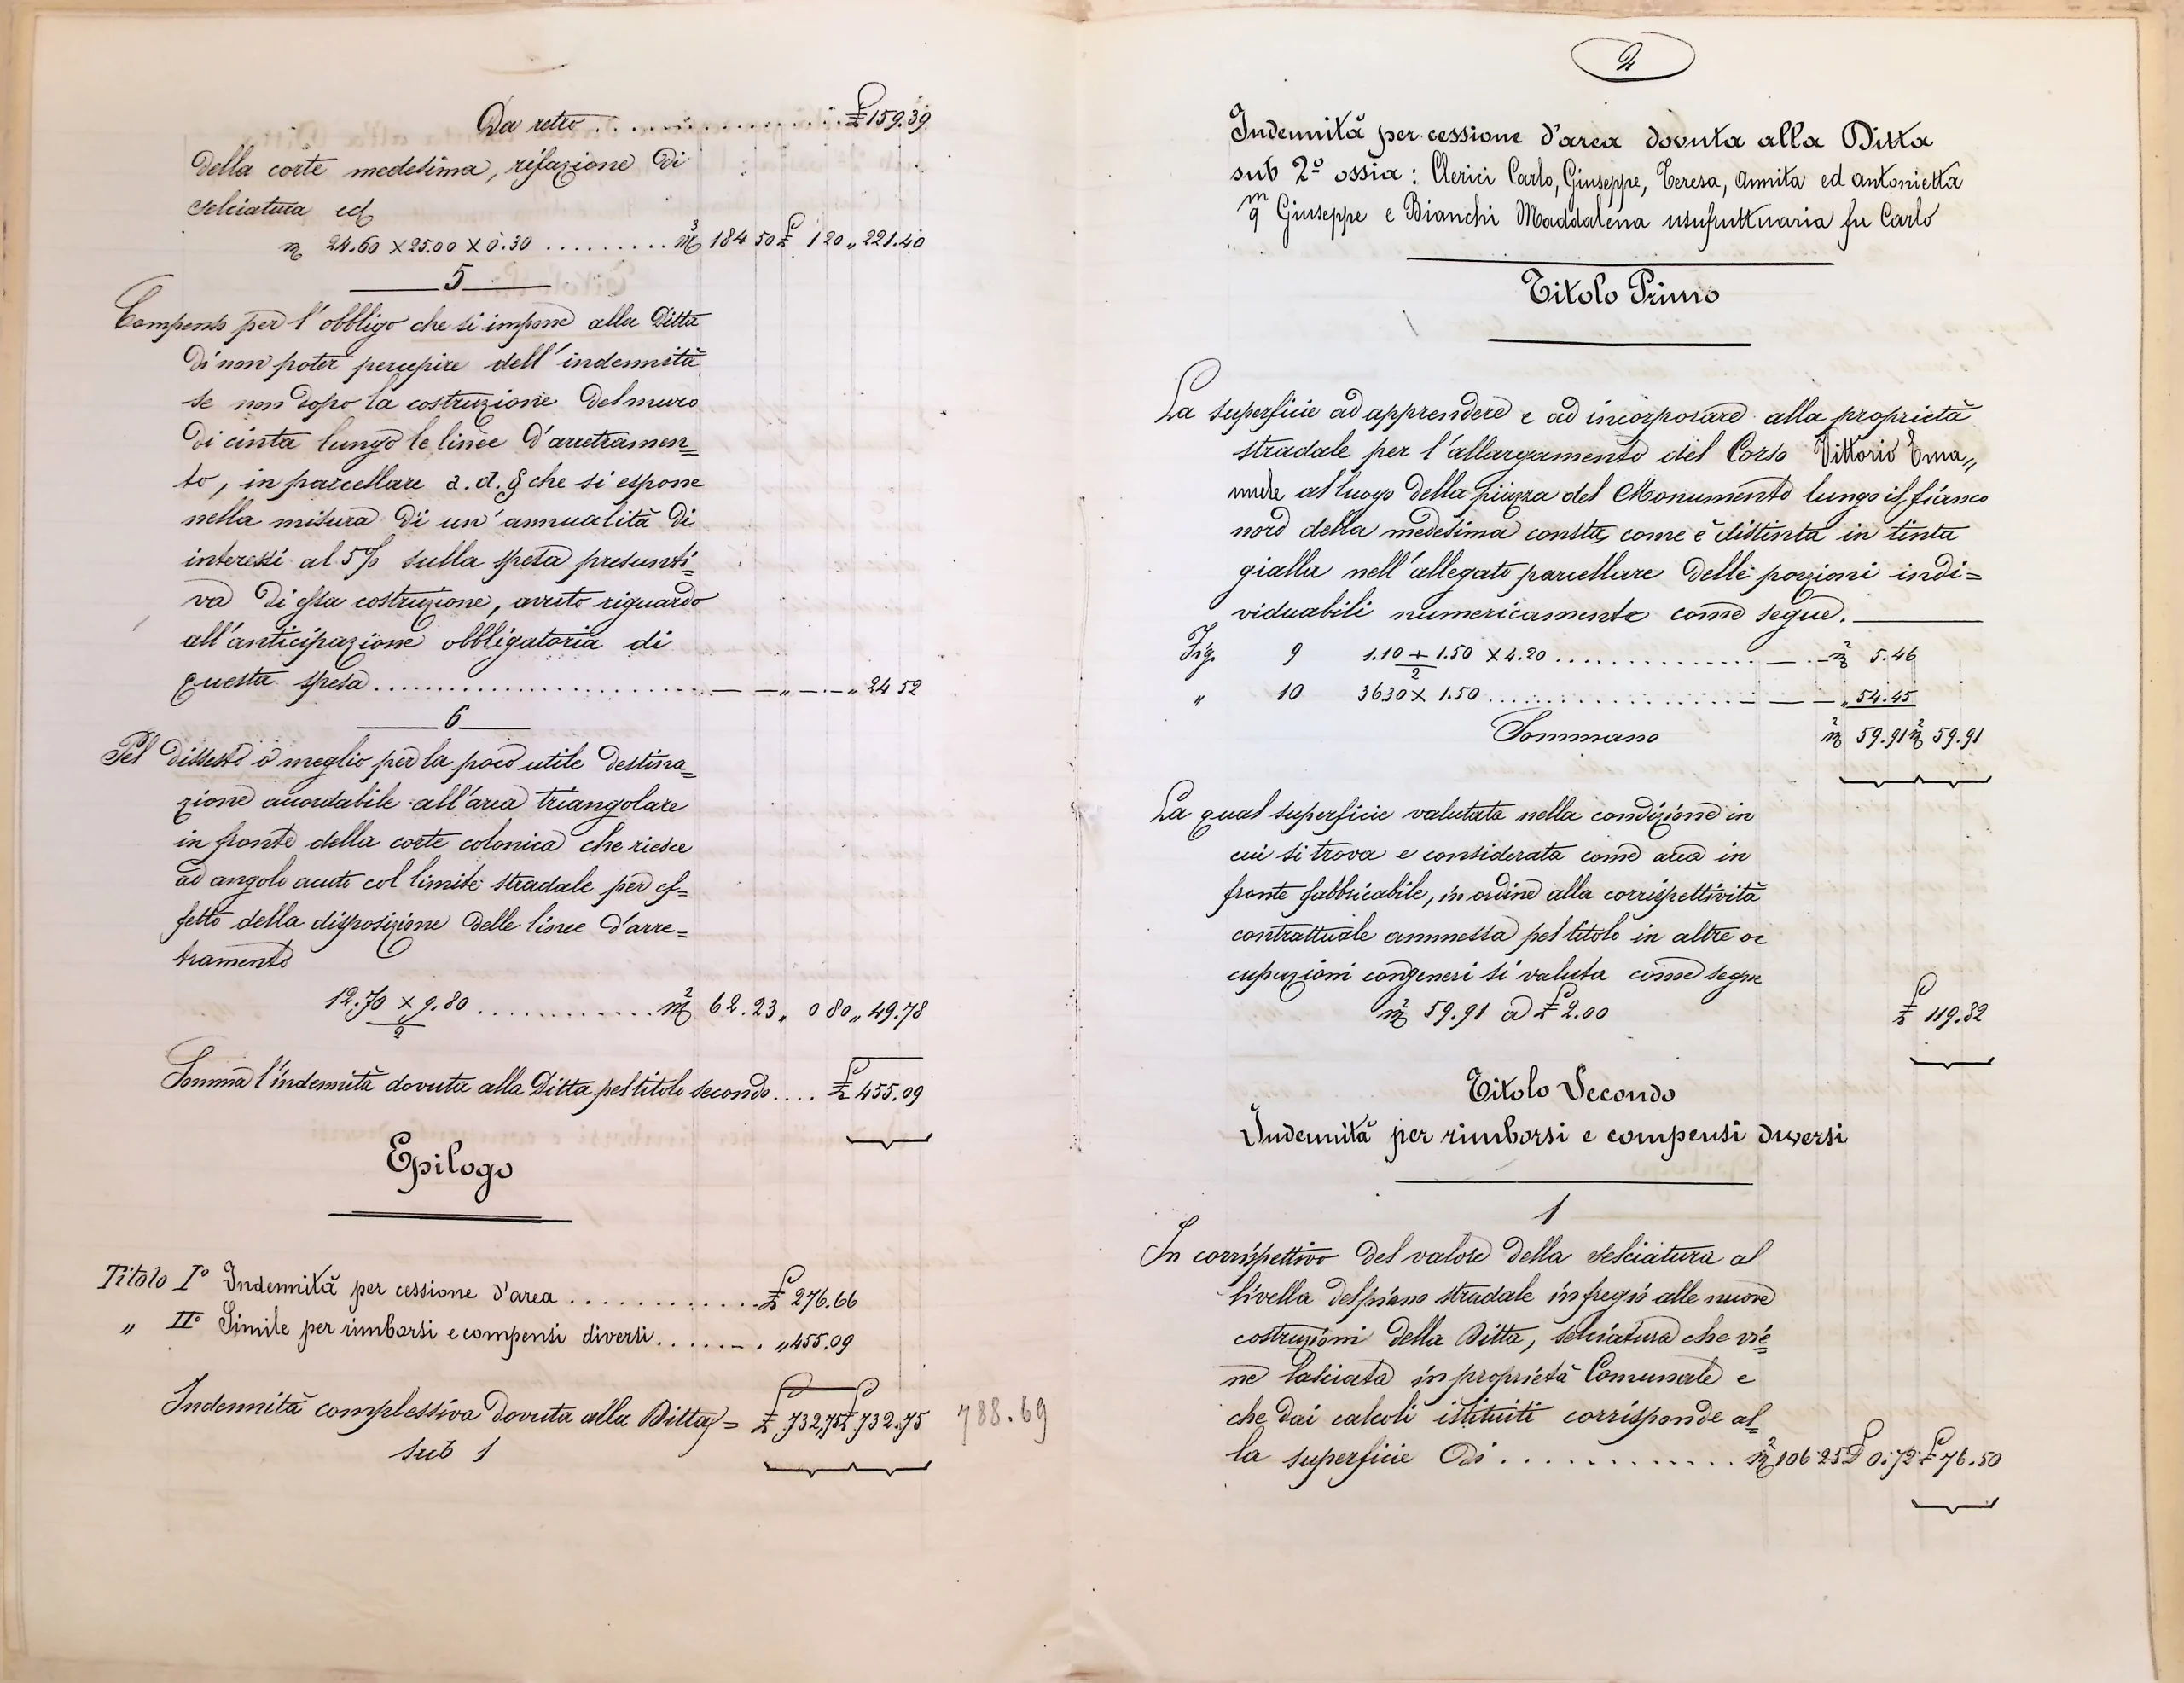 Da retro . . . . . . . . . . . . . . . . £ 159.39
della corte medesima, rifazione di
selciatura ed
m 24.60 × 25.00 × 0.30 . . . . . . . . . m³ 184 50 £ 1 20 „ 221.40
5
Compenso per l'obbligo che si impone alla Ditta
di non poter percepire dell'indennità
se non dopo la costruzione del muro
di cinta lungo le linee d'arretramen=
to, in parcellare a. d. g che si espone
nella misura di un'annualità di
interessi al 5% sulla spesa presunti=
va di essa costruzione, avuto riguardo
all'anticipazione obbligatoria di
questa spesa . . . . . . . . . . . . . . . . . . — — „ — . — „ 24 52
6
Pel dissesto o meglio per la poco utile destina=
zione accordabile all'area triangolare
in fronte della corte colonica che riesce
ad angolo acuto col limite stradale per ef=
fetto della disposizione delle linee d'arre=
tramento
12.70 × 9.80 / 2 . . . . . . . . . . . . m² 62.23 „ 0 80 „ 49.78
Somma l'indennità dovuta alla Ditta pel titolo secondo . . . . £ 455.09
Epilogo
Titolo I° Indennità per cessione d'area . . . . . . . . . . . . . £ 276.66
„ II° Simile per rimborsi e compensi diversi . . . . . . . . „ 455.09
Indennità complessiva dovuta alla Ditta = £ 732,75 £ 732.75 788.69
sub 1
2
Indennità per cessione d'area dovuta alla Ditta
sub 2° ossia: Clerici Carlo, Giuseppe, Teresa, Annita ed Antonietta
qm Giuseppe e Bianchi Maddalena usufruttuaria fu Carlo
Titolo Primo
La superficie ad apprendere e ad incorporare alla proprietà
stradale per l'allargamento del Corso Vittorio Ema„
nuele al luogo della piazza del Monumento lungo il fianco
nord della medesima consta, come è distinta in tinta
gialla nell'allegato parcellare delle porzioni indi=
viduabili numericamente come segue.
Fig. 9 1.10 + 1.50 / 2 × 4.20 . . . . . . . . . . . . . . . — . — m² 5.46
„ 10 36.30 × 1.50 . . . . . . . . . . . . . . . . — — — „ 54.45
Sommano m² 59.91 m² 59.91
La qual superficie valutata nella condizione in
cui si trova e considerata come area in
fronte fabbricabile, in ordine alla corrispettività
contrattuale ammessa pel titolo in altre oc
cupazioni congeneri si valuta come segue
m² 59.91 a £ 2.00 £ 119.82
Titolo Secondo
Indennità per rimborsi e compensi diversi
1
In corrispettivo del valore della selciatura al
livello del piano stradale in fregio alle nuove
costruzioni della Ditta, selciatura che vie=
ne lasciata in proprietà Comunale e
che dai calcoli istituiti corrisponde al=
la superficie di . . . . . . . . . . . . m² 106.25 £ 0.72 £ 76.50